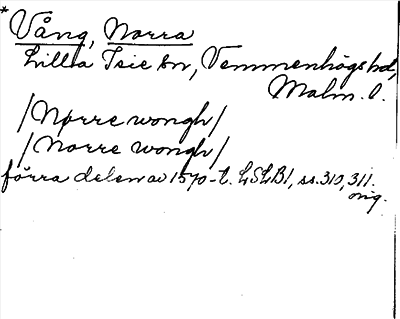 * Vång, Norra
Lilla Isie sn, Vemmenhögs hd,
Malm. l.
/Nørre wongh/
/Norre wongh/
förra delen av 1570-t. LSLB1, ss. 310, 311.
orig.